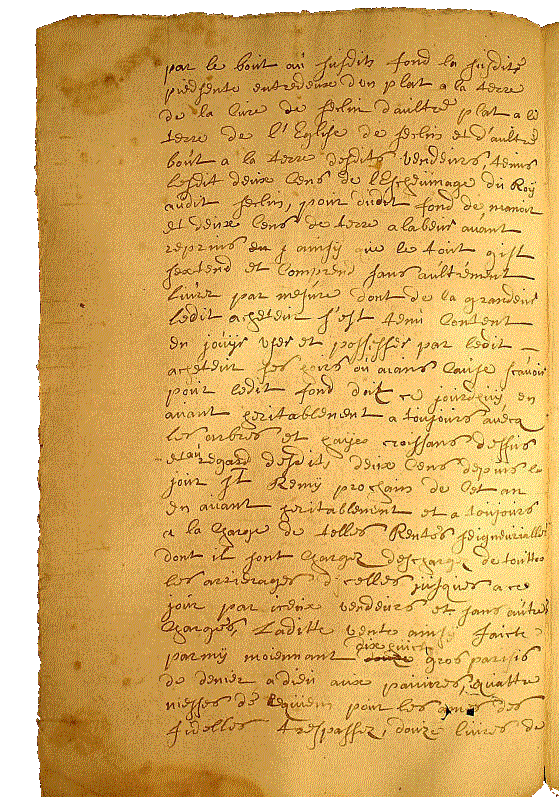 par le bout au susdit fond la susditte
piedsente entredeux d'un plat a la terre
de la cure de seclin d'aultre plat a le
terre de l'Eglise de seclin et d'aultre
bout a la terre desdits vendeurs tenus
lesdit deux cens de l'Eschevinage du Roy
audit seclin, pour dudit fond de manoir
et deux cens de terre a labeur avant
reprins en j ainsy que le tout gist
s'extend et comprend sans aultrement
livrer par mesure dont de la grandeur
ledit acheteur s'est tenu content
en jouyr user et possesser par ledit
acheteur ses hoirs ou aians cause scavoir
pour ledit fond de ce jourdhuy en
avant heritablement a toujours avecq
les arbres et hayes croissans dessus
et au regard desdits deux cens depuis le
jour St Remy prochain de cet an
en avant heritablement et a toujours
a la charge de telles Rentes seigneurialles
dont il sont chargez descharge de touttes
les arrierages d'icelles jusques a ce
jour par iceux vendeurs et sans autres
charges, Laditte vente ainsy faicte
parmy moiennant dix huict gros parisis
de denier a dieu aux pauvres, quattre
messes de Requiem pour les ames des
fidelles trespassez, douze livres de